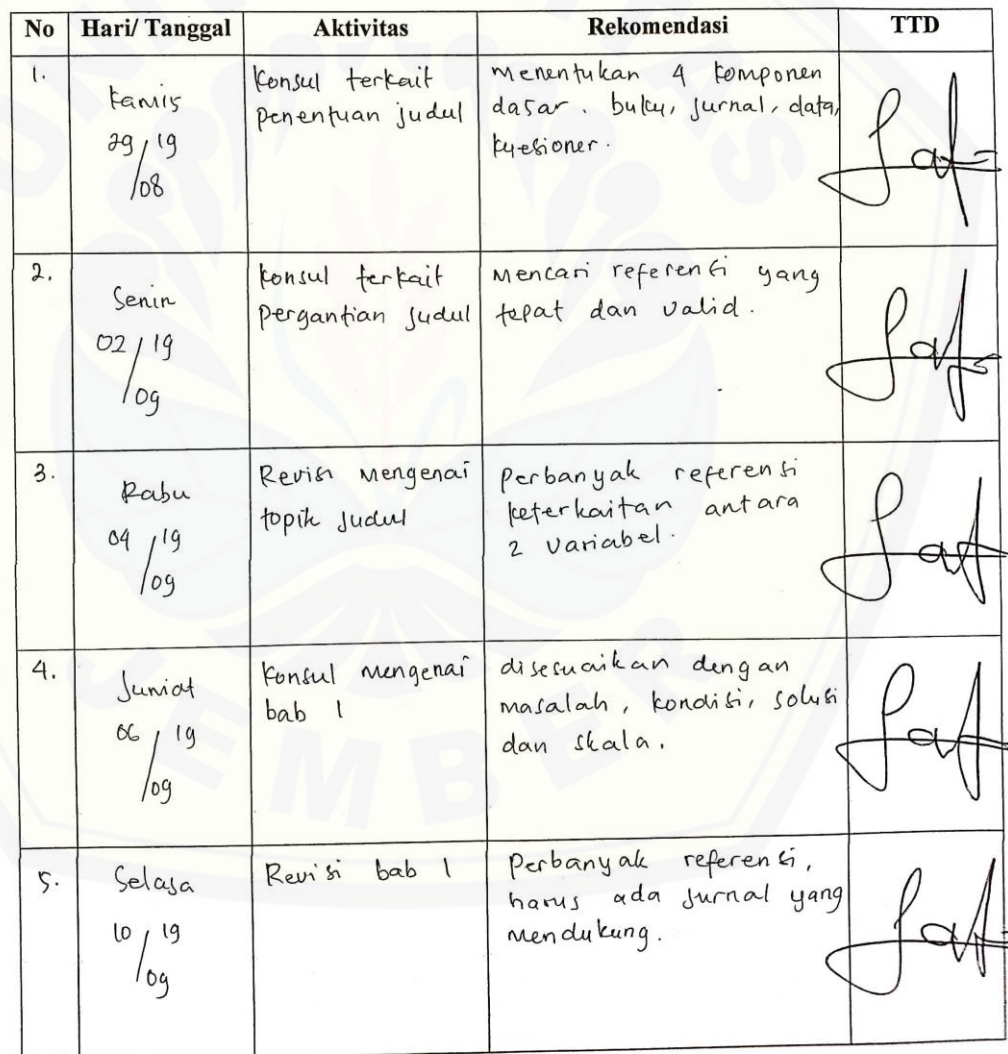 No Hari/ Tanggal Aktivitas Rekomendasi TTD
1.
Kamis
29/19
/08
Konsul terkait
penentuan judul
menentukan 4 komponen
dasar. buku, jurnal, data,
kuesioner.
2.
Senin
02/19
/09
konsul terkait
pergantian judul
mencari referensi yang
tepat dan valid.
3.
Rabu
04/19
/09
Revisi mengenai
topik judul
Perbanyak referensi
keterkaitan antara
2 variabel.
4.
Jumat
06/19
/09
Konsul mengenai
bab 1
disesuaikan dengan
masalah, kondisi, solusi
dan skala.
5.
Selasa
10/19
/09
Revisi bab 1
Perbanyak referensi,
harus ada jurnal yang
mendukung.